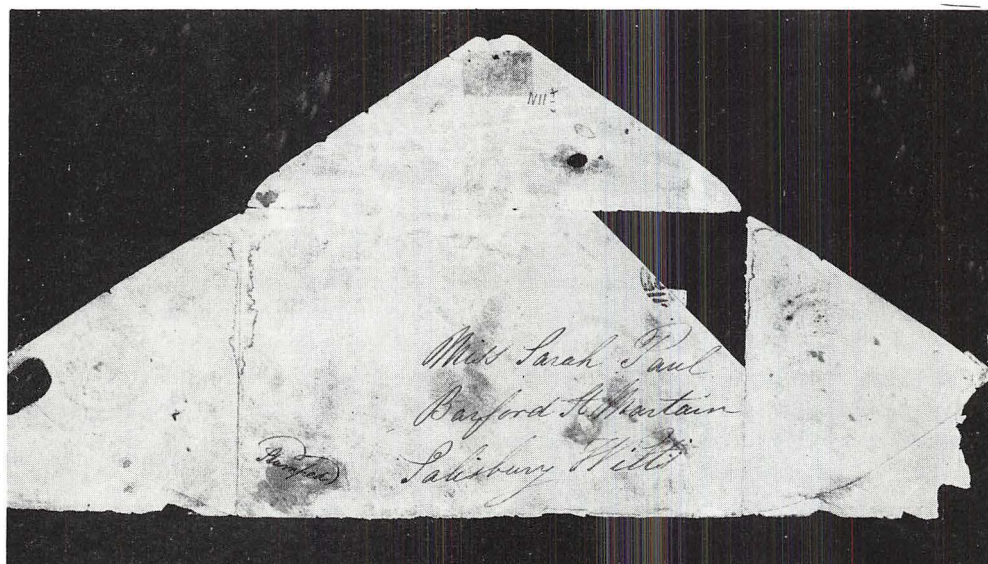 Miss Sarah Paul
Barford St Martain
Salisbury Wilts